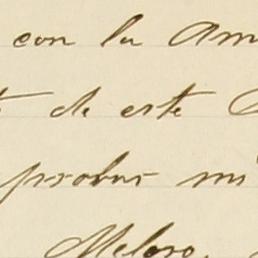 con la Am
de este
probar mi
Meloro,